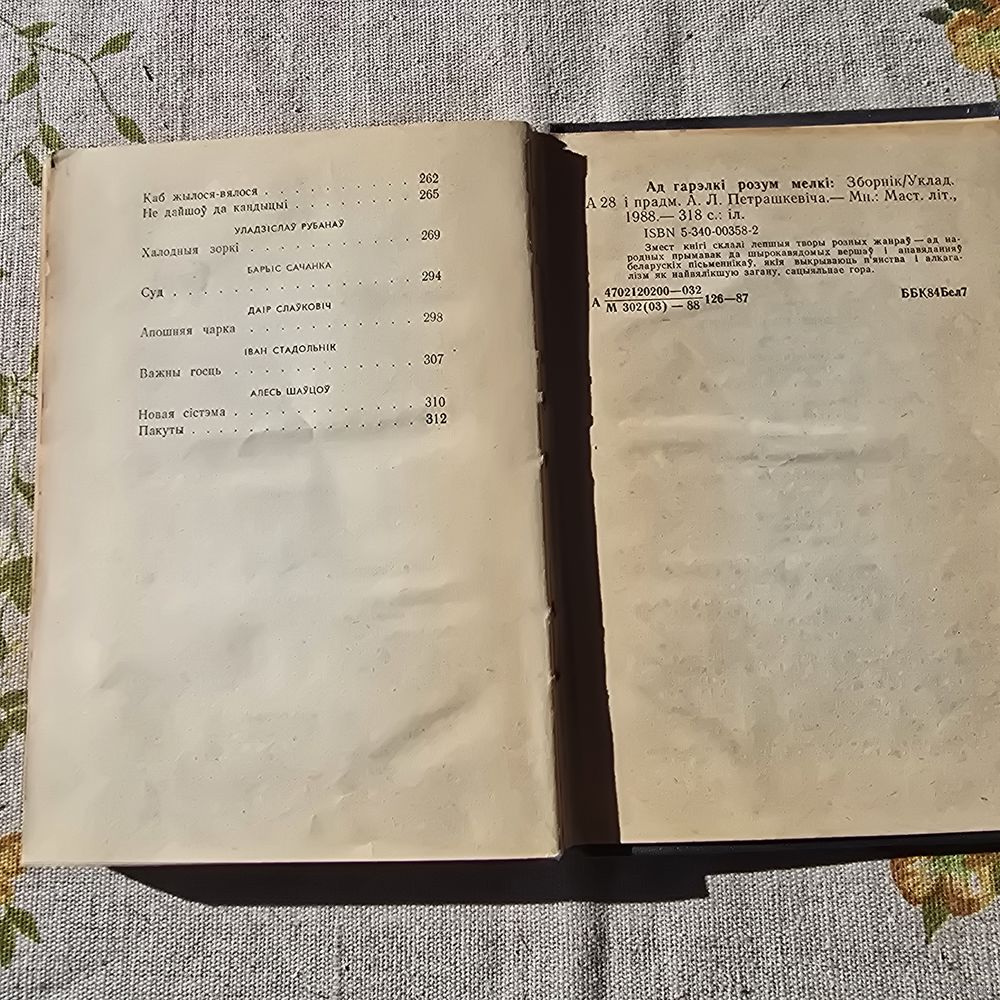 Каб жылося-вялося . . . . . . . . . . . 262
Не дайшоў да кандыцыі . . . . . . . . . 265
УЛАДЗІСЛАЎ РУБАНАЎ
Халодныя зоркі . . . . . . . . . . . . 269
БАРЫС САЧАНКА
Суд . . . . . . . . . . . . . . . . 294
ДАІР СЛАЎКОВІЧ
Апошняя чарка . . . . . . . . . . . . 298
ІВАН СТАДОЛЬНІК
Важны госць . . . . . . . . . . . . . 307
АЛЕСЬ ШАЎЦОЎ
Новая сістэма . . . . . . . . . . . . 310
Пакуты . . . . . . . . . . . . . . . 312
Ад гарэлкі розум мелкі: Зборнік/Уклад.
А 28 і прадм. А. Л. Петрашкевіча.— Мн.: Маст. літ.,
1988.— 318 с.: іл.
ISBN 5-340-00358-2
Змест кнігі склалі лепшыя творы розных жанраў — ад на-
родных прымавак да шырокавядомых вершаў і апавяданняў
беларускіх пісьменнікаў, якія выкрываюць п'янства і алкага-
лізм як найвялікшую загану, сацыяльнае гора.
А 4702120200—032 126—87 ББК84Бел7
М 302(03) — 88